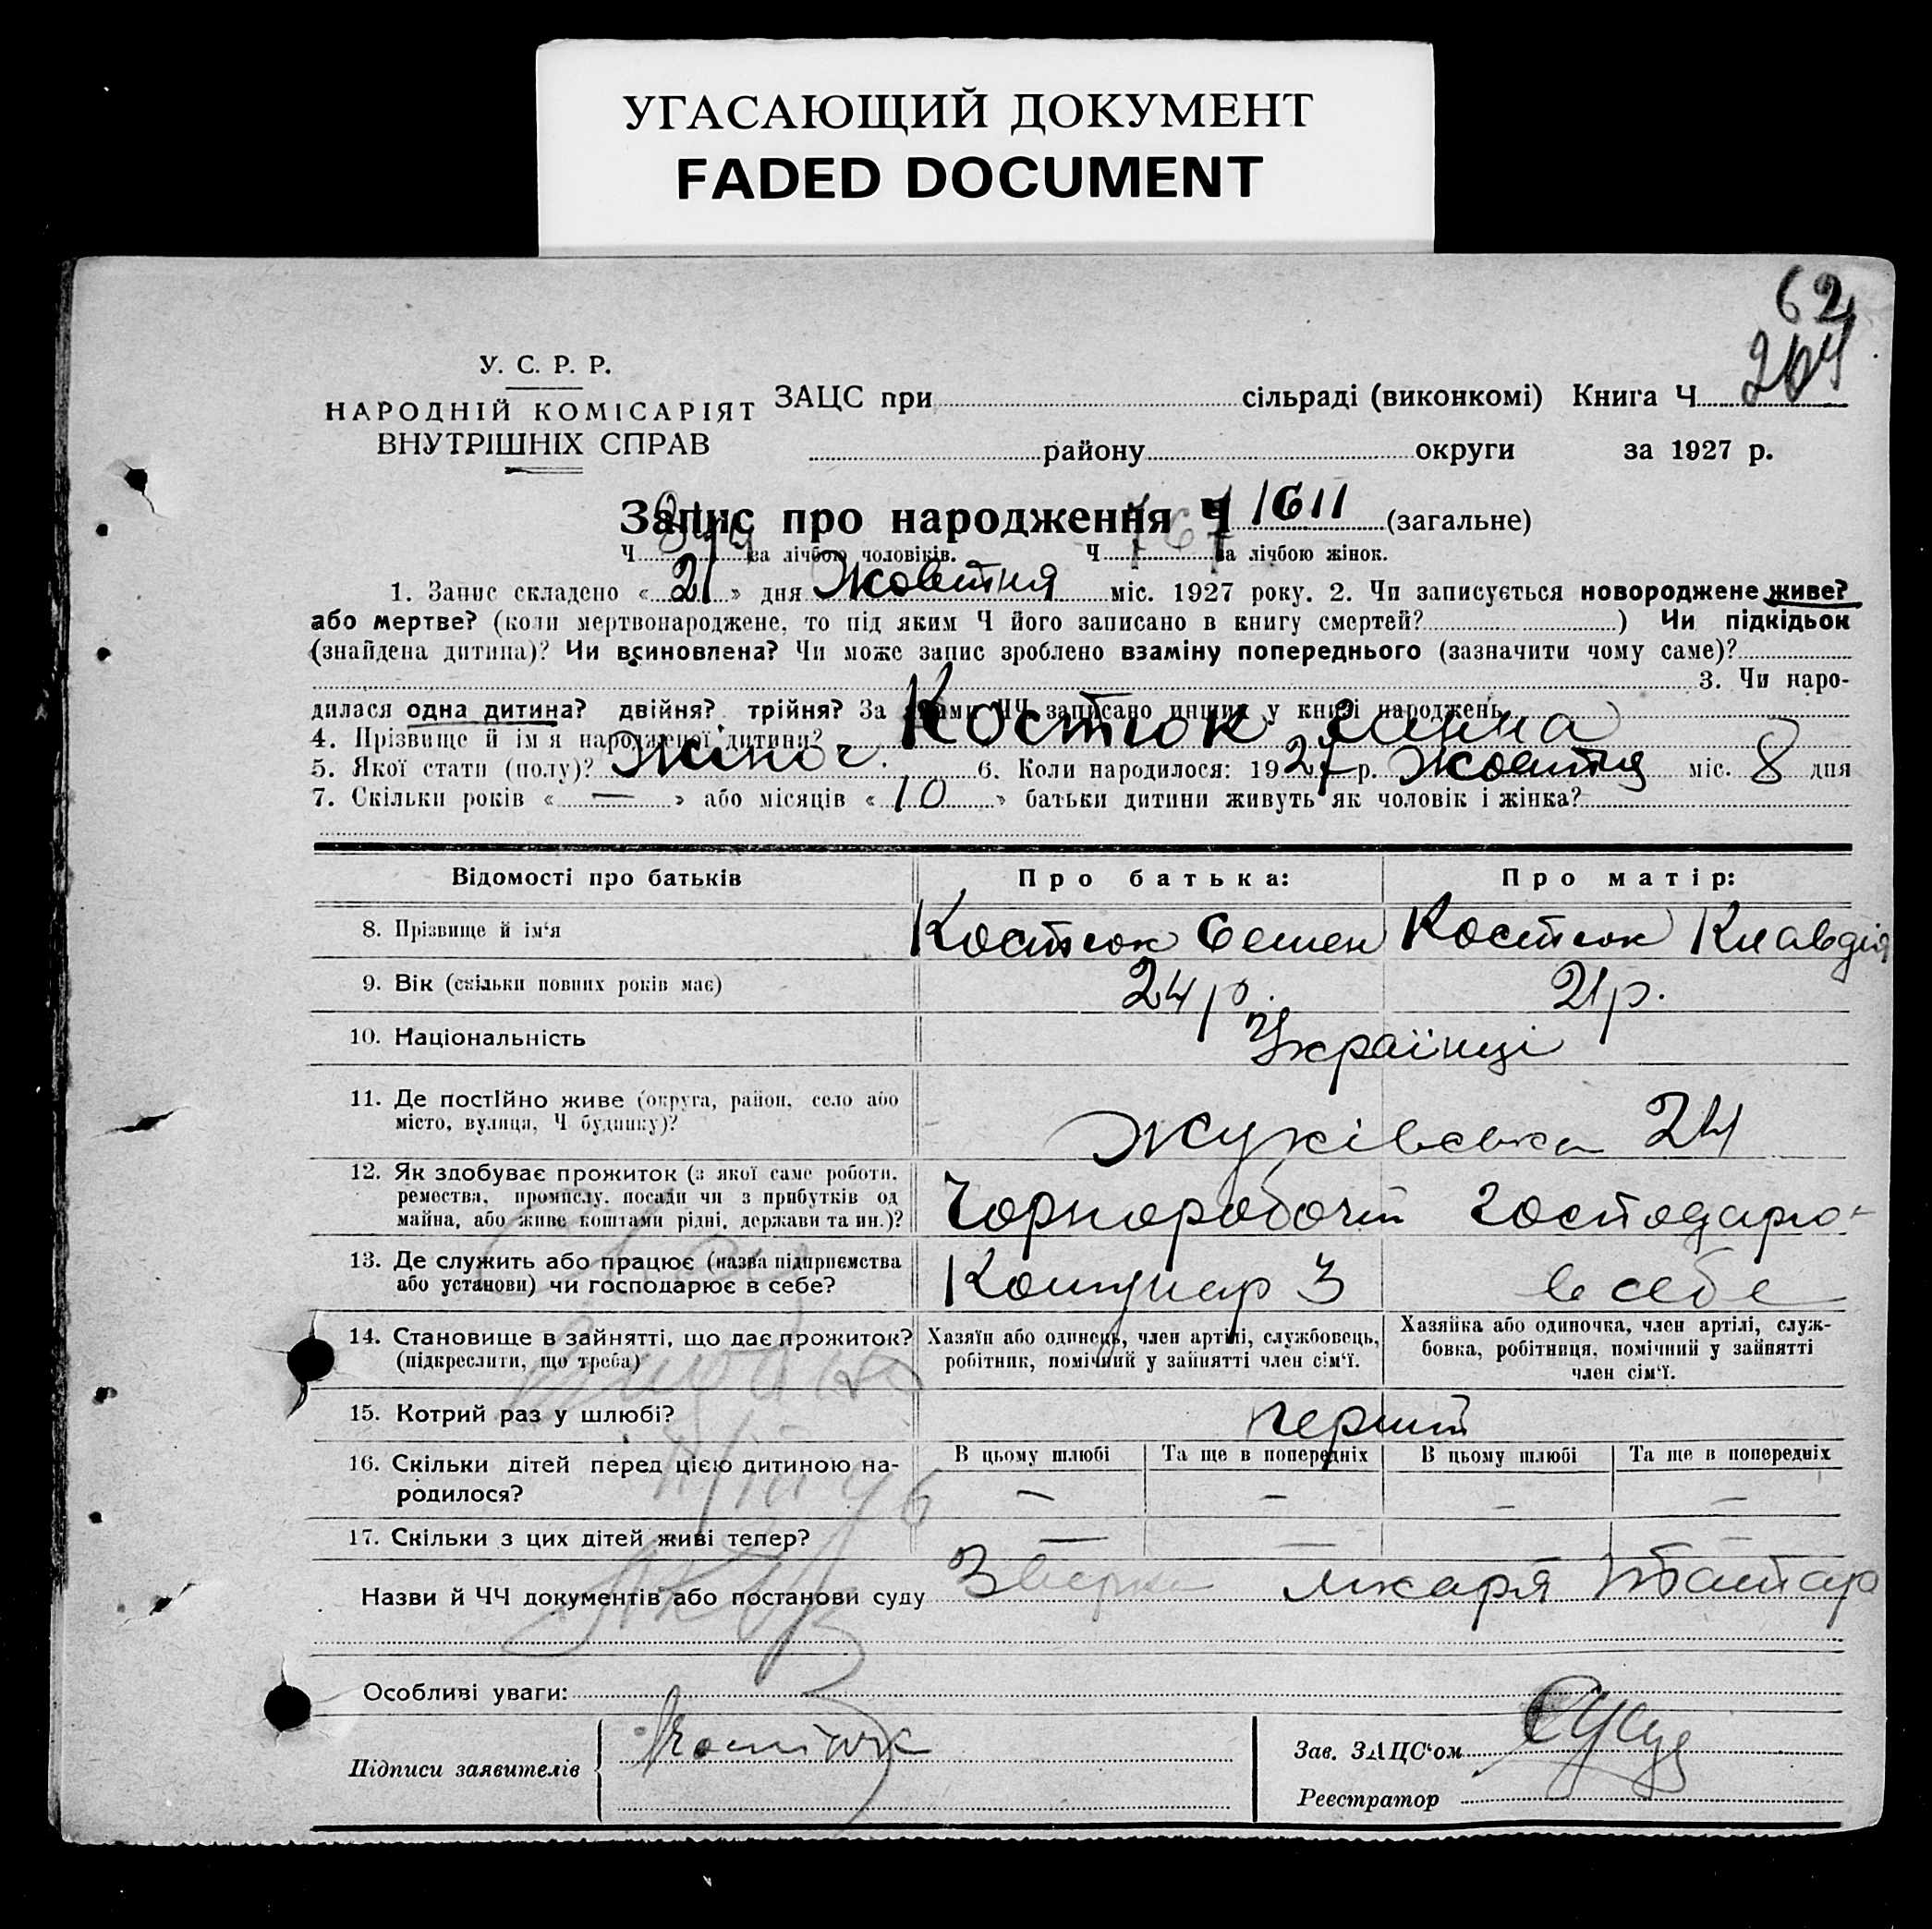 УГАСАЮЩИЙ ДОКУМЕНТ
FADED DOCUMENT
62
204
У. С. Р. Р.
НАРОДНІЙ КОМІСАРІЯТ
ВНУТРІШНІХ СПРАВ
ЗАЦС при сільраді (виконкомі) Книга Ч
району округи за 1927 р.
Запис про народження Ч 1611 (загальне)
Ч за лічбою чоловіків. Ч 767 за лічбою жінок.
1. Запис складено « 21 » дня Жовтня міс. 1927 року. 2. Чи записується новороджене живе?
або мертве? (коли мертвонароджене, то під яким Ч його записано в книгу смертей? ) Чи підкідьок
(знайдена дитина)? Чи всиновлена? Чи може запис зроблено взаміну попереднього (зазначити чому саме)?
3. Чи наро-
дилася одна дитина? двійня? трійня? За якими ЧЧ записано инших у книзі народжень
4. Прізвище й ім'я народженої дитини? Костюк Ганна
5. Якої стати (полу)? Жіноч. 6. Коли народилося: 1927 р. Жовтня міс. 8 дня
7. Скільки років « — » або місяців « 10 » батьки дитини живуть як чоловік і жінка?
Відомості про батьків Про батька: Про матір:
8. Прізвище й ім'я Костюк Семен Костюк Клавдія
9. Вік (скільки повних років має) 24 р. 21 р.
10. Національність Українці
11. Де постійно живе (округа, район, село або
місто, вулиця, Ч будинку)? Жуківська 24
12. Як здобуває прожиток (з якої саме роботи,
ремества, промислу, посади чи з прибутків од
майна, або живе коштами рідні, держави та ин.)? Чорноробочий господарю-
13. Де служить або працює (назва підприємства
або установи) чи господарює в себе? в себе
14. Становище в зайнятті, що дає прожиток?
(підкреслити, що треба)
Хазяїн або одинець, член артілі, службовець,
робітник, помічний у зайнятті член сім'ї.
Хазяйка або одиночка, член артілі, служ-
бовка, робітниця, помічний у зайнятті
член сім'ї.
15. Котрий раз у шлюбі? перший
16. Скільки дітей перед цією дитиною на-
родилося?
В цьому шлюбі Та ще в попередніх В цьому шлюбі Та ще в попередніх
— — — —
17. Скільки з цих дітей живі тепер? — — —
Назви й ЧЧ документів або постанови суду лікаря
Особливі уваги:
Підписи заявителів Костюк
Зав. ЗАЦС'ом
Реєстратор